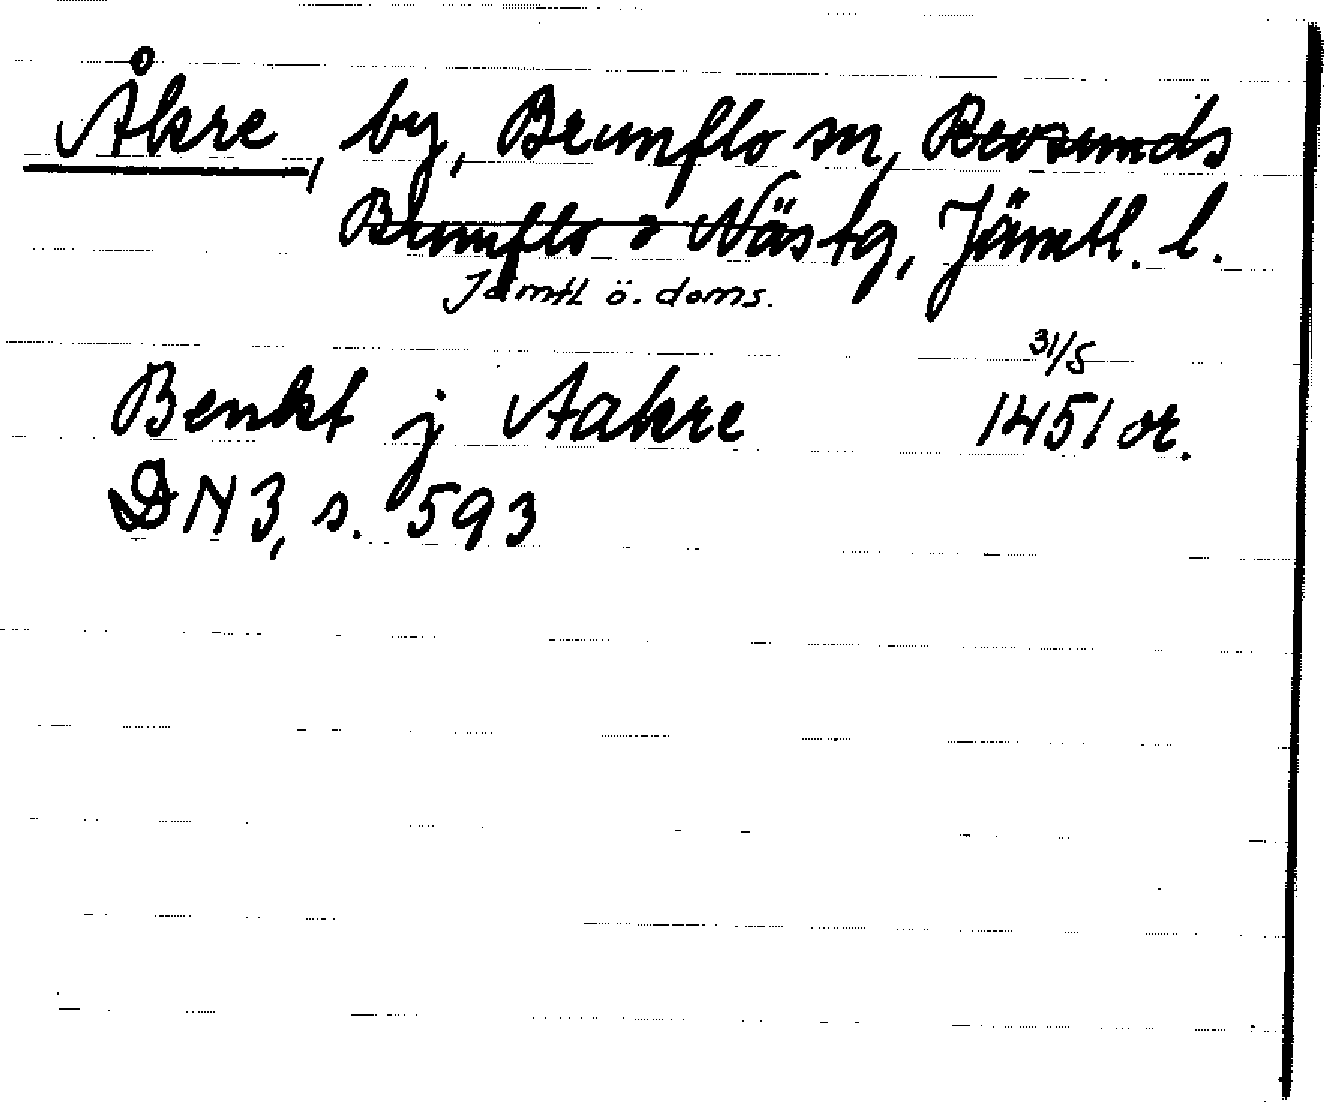 Åkre, by, Brunflo sn, Revsunds
Brunflo o Näs tg, Jämtl. l.
Jämtl ö. doms.
31/5
Benkt j Aakre 1451 or.
DN 3, s. 593